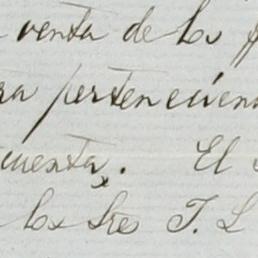 venta de los
ra pertenecien
cuenta. El
los Sres T. L